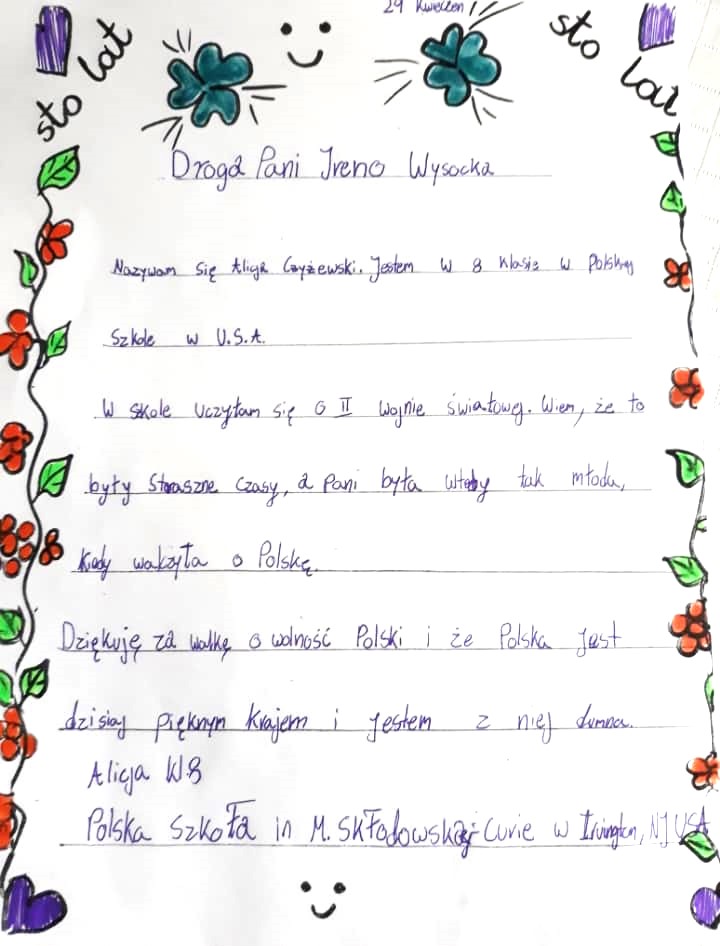 29 Kwiecien
sto lat
sto lat
Droga Pani Ireno Wysocka
Nazywam się Alicja Czyżewski. Jestem w 8 klasie w Polskiej
Szkole w U.S.A.
W skole uczyłam się o II wojnie światowej. Wiem, że to
były straszne czasy, a Pani była wtedy tak młoda,
kiedy walczyła o Polskę.
Dziękuję za walkę o wolność Polski i że Polska jest
dzisiaj pięknym krajem i jestem z niej dumna.
Alicja W8
Polska Szkoła in M. Skłodowskiej Curie w Irvington, NJ USA